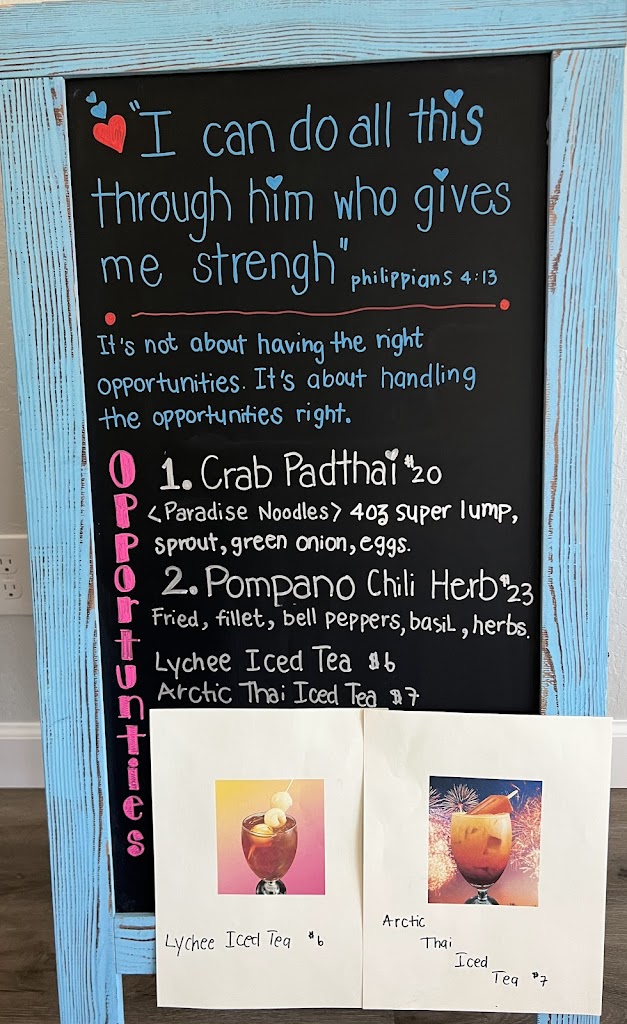 "I can do all this
through him who gives
me strengh"
philippians 4:13
It's not about having the right
opportunities. It's about handling
the opportunities right.
Opportunties
1. Crab Padthai $20
<Paradise Noodles> 4oz super lump,
sprout, green onion, eggs.
2. Pompano Chili Herb $23
Fried, fillet, bell peppers, basil, herbs.
Lychee Iced Tea $6
Arctic Thai Iced Tea $7
Lychee Iced Tea $6
Arctic
Thai
Iced
Tea $7